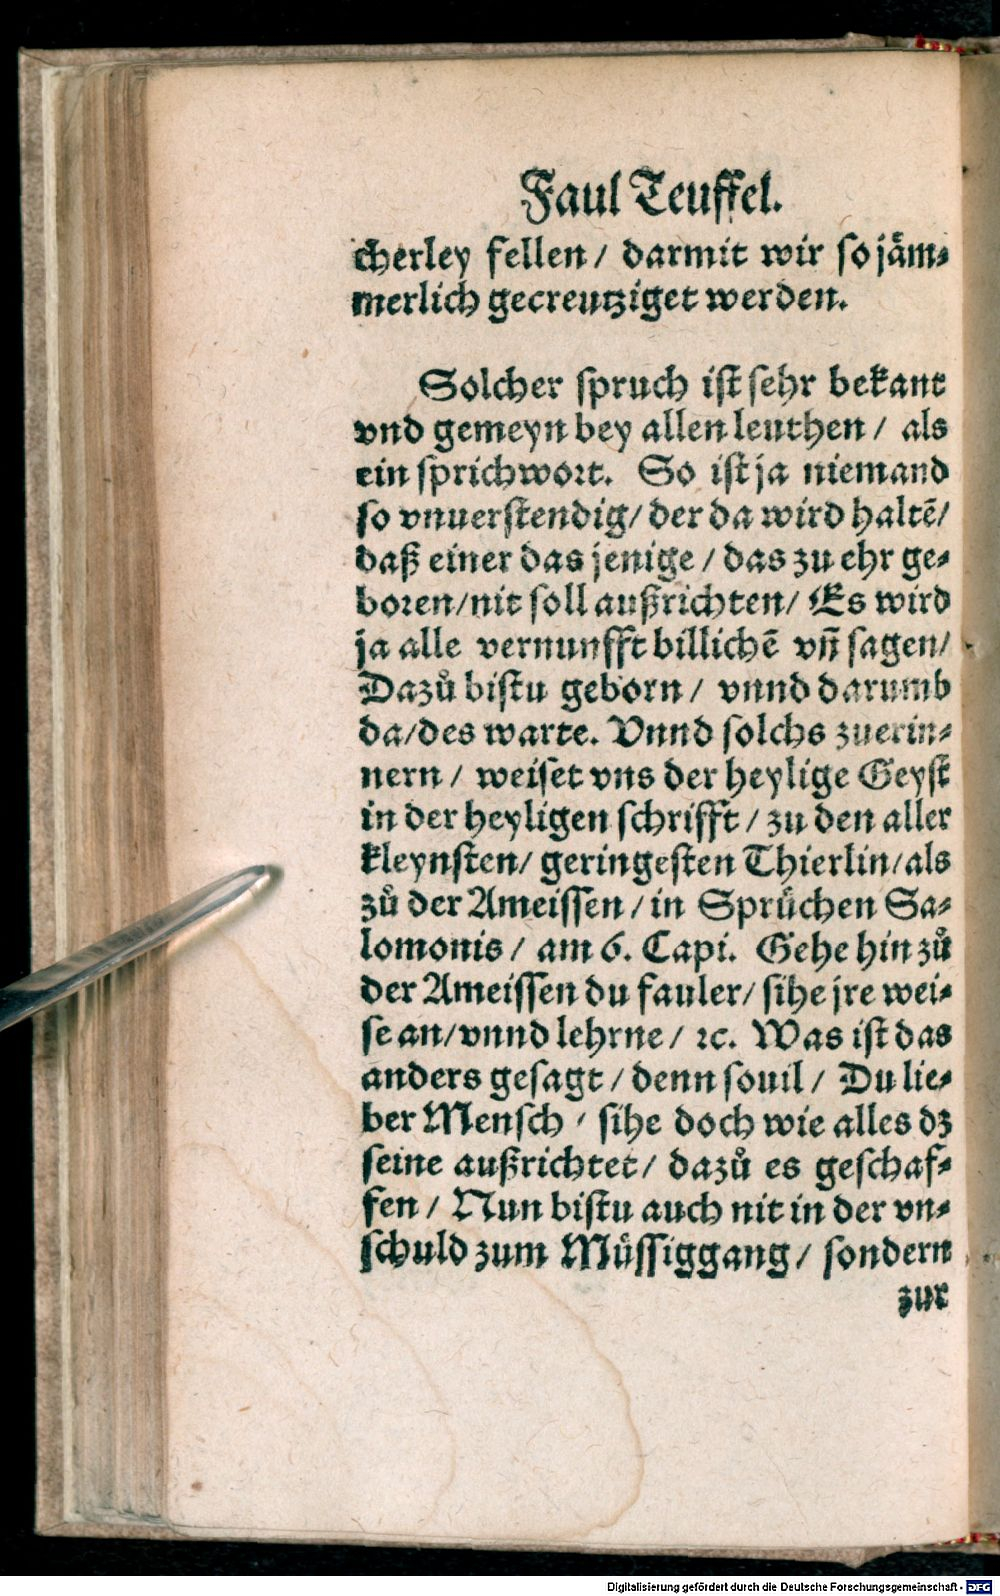 Faul Teuffel.
cherley fellen / darmit wir so jaͤm⸗
merlich gecreutziget werden.
Solcher spruch ist sehr bekant
vnd gemeyn bey allen leuthen / als
ein sprichwort. So ist ja niemand
so vnuerstendig / der da wird haltē /
daß einer das jenige / das zu ehr ge⸗
boren / nit soll außrichten / Es wird
ja alle vernunfft billichē vñ sagen /
Dazuͦ bistu geborn / vnnd darumb
da / des warte. Vnnd solchs zuerin⸗
nern / weiset vns der heylige Geyst
in der heyligen schrifft / zu den aller
kleynsten / geringesten Thierlin / als
zuͦ der Ameissen / in Spruͤchen Sa⸗
lomonis / am 6. Capi. Gehe hin zuͦ
der Ameissen du fauler / sihe jre wei⸗
se an / vnnd lehrne / ꝛc. Was ist das
anders gesagt / denn souil / Du lie⸗
ber Mensch / sihe doch wie alles dz
seine außrichtet / dazuͦ es geschaf⸗
fen / Nun bistu auch nit in der vn⸗
schuld zum Muͤssiggang / sondern
zur
Digitalisierung gefördert durch die Deutsche Forschungsgemeinschaft - DFG